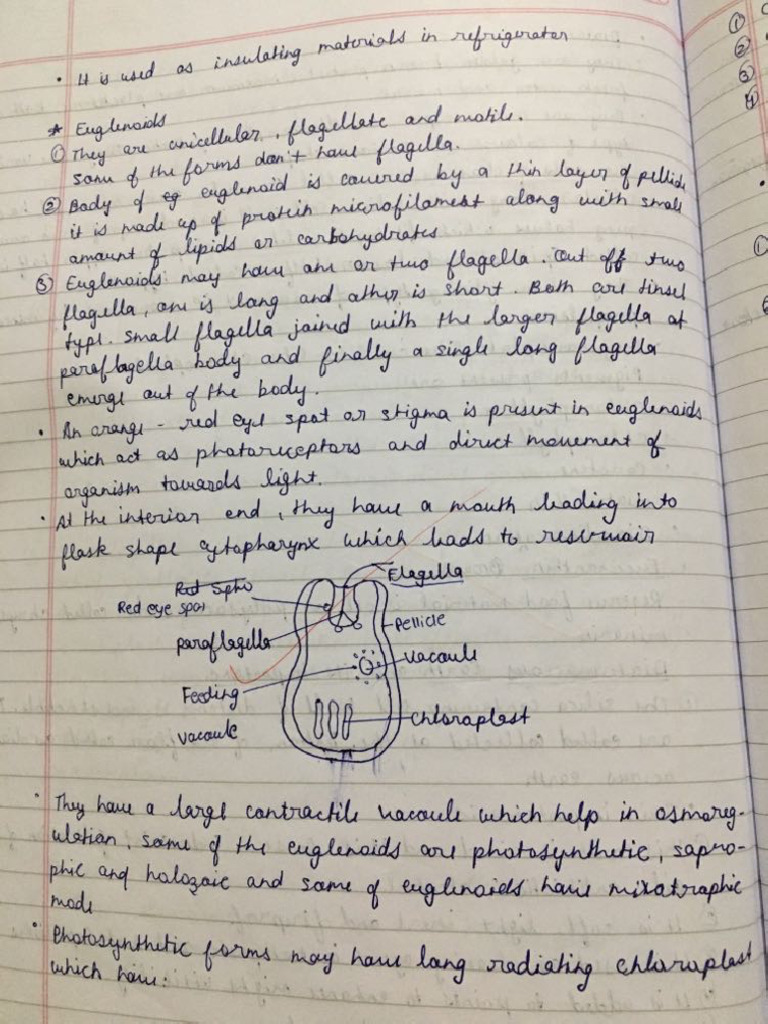 • It is used as insulating materials in refrigerator
* Euglenoids
① They are unicellular, flagellate and motile.
some of the forms don't have flagella.
② Body of eg euglenoid is covered by a thin layer of pellicle
it is made up of protein microfilament along with small
amount of lipids or carbohydrates
③ Euglenoids may have one or two flagella. Out of two
flagella, one is long and other is short. Both are tinsel
type. Small flagella joined with the larger flagella at
paraflagella body and finally a single long flagella
emerge out of the body.
• An orange - red eye spot or stigma is present in euglenoids
which act as photoreceptors and direct movement of
organism towards light.
• At the interior end, they have a mouth leading into
flask shape cytopharynx which leads to reservoir
Flagella
Red eye spot
Pellicle
paraflagella
vacoule
Feeding
vacoule
chloroplast
• They have a large contractile vacoule which help in osmoreg-
ulation, some of the euglenoids are photosynthetic, sapro-
phic and holozoic and some of euglenoids have mixotrophic
mode
• Photosynthetic forms may have long radiating chloroplast
which have.
①
②
③
④